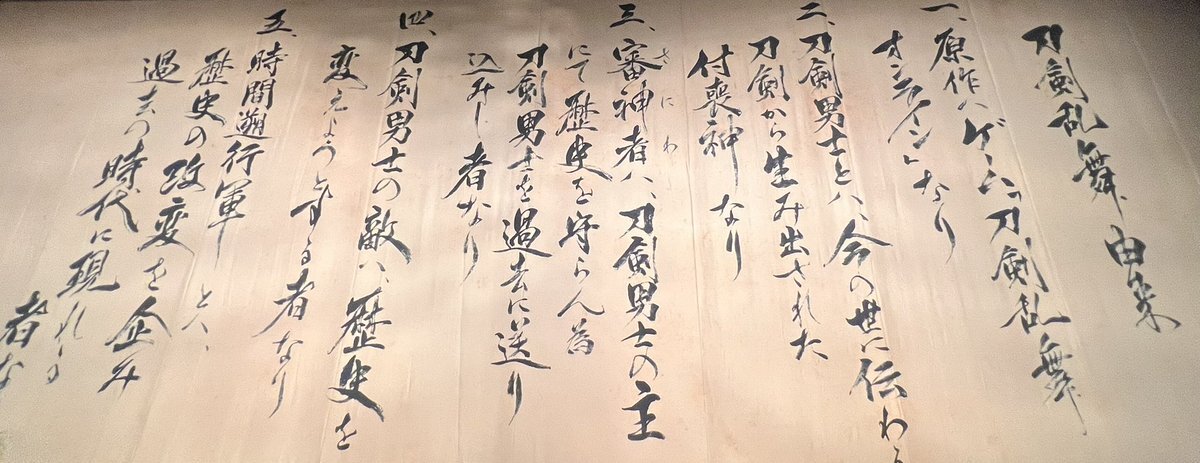 刀剣乱舞 由来
一、原作ハゲーム「刀剣乱舞
オンライン」なり
二、刀剣男士とハ、今の世に伝わる
刀剣から生み出された
付喪神なり
さにわ
三、審神者ハ、刀剣男士の主
にて歴史を守らん為
刀剣男士を過去に送り
込みし者なり
四、刀剣男士の敵ハ、歴史を
変えようとする者なり
五、時間遡行軍とハ、
歴史の改変を企み
過去の時代に現れる
者な